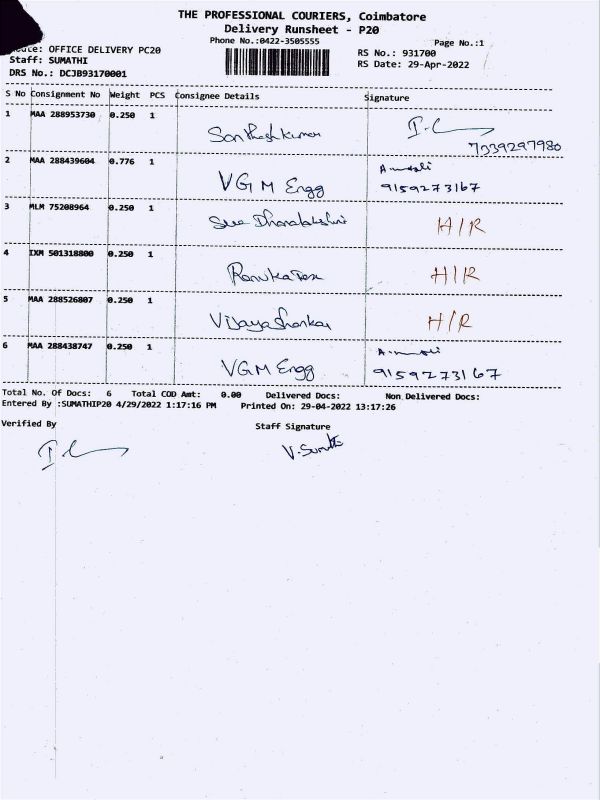 THE PROFESSIONAL COURIERS, Coimbatore
Delivery Runsheet - P20
Phone No.:0422-3505555
Page No.:1
OFFICE DELIVERY PC20
RS No.: 931700
Staff: SUMATHI
RS Date: 29-Apr-2022
DRS No.: DCJB93170001
S No Consignment No Weight PCS Consignee Details Signature
1 MAA 288953730 0.250 1 Santhoshkumar 7539297980
2 MAA 288439604 0.776 1 VGM Engg 9159273167
3 MLM 75208964 0.250 1 Sree Dhanalakshmi H/R
4 IXM 501318800 0.250 1 Renuka Tex H/R
5 MAA 288526807 0.250 1 Vijayashankar H/R
6 MAA 288438747 0.250 1 VGM Engg 9159273167
Total No. Of Docs: 6 Total COD Amt: 0.00 Delivered Docs: Non Delivered Docs:
Entered By :SUMATHIP20 4/29/2022 1:17:16 PM Printed On: 29-04-2022 13:17:26
Verified By Staff Signature
V. Sumathi